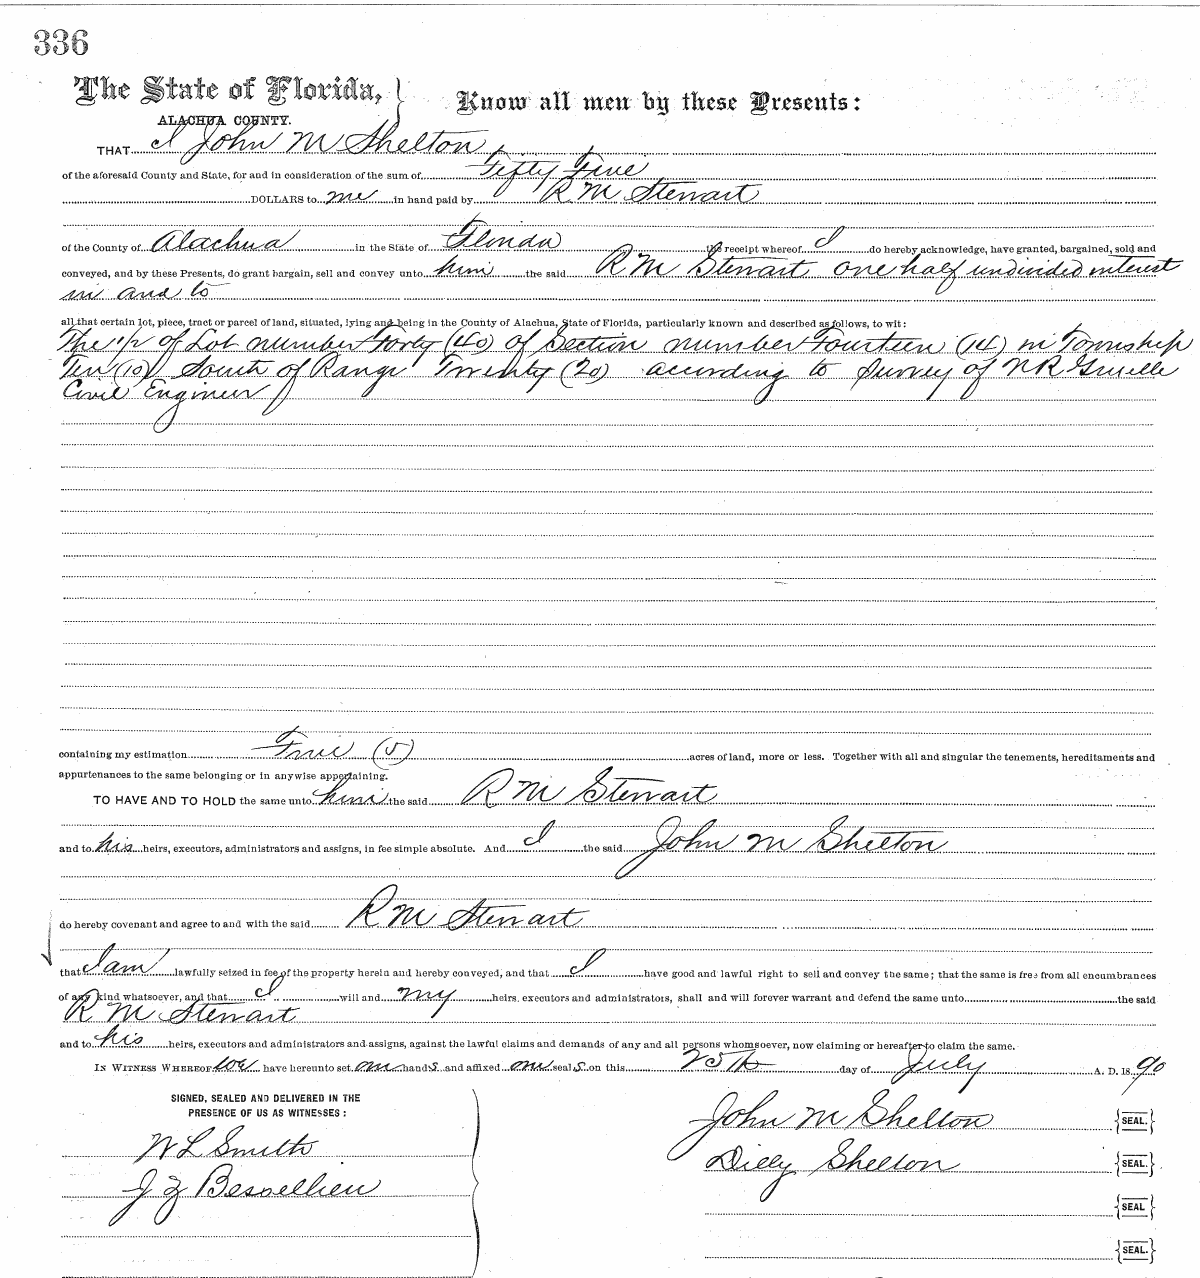 336
The State of Florida, } Know all men by these Presents:
ALACHUA COUNTY.
THAT I John M Shelton
of the aforesaid County and State, for and in consideration of the sum of Fifty Five
DOLLARS to me in hand paid by R M Stewart
of the County of Alachua in the State of Florida the receipt whereof I do hereby acknowledge, have granted, bargained, sold and
conveyed, and by these Presents, do grant bargain, sell and convey unto him the said R M Stewart one half undivided interest
in and to
all that certain lot, piece, tract or parcel of land, situated, lying and being in the County of Alachua, State of Florida, particularly known and described as follows, to wit:
The of Lot number Forty (40) of Section number Fourteen (14) in Township
Ten (10) South of Range Twenty (20) according to Survey of N R
Civil Engineer
containing my estimation Five (5) acres of land, more or less. Together with all and singular the tenements, hereditaments and
appurtenances to the same belonging or in anywise appertaining.
TO HAVE AND TO HOLD the same unto him the said R M Stewart
and to his heirs, executors, administrators and assigns, in fee simple absolute. And I the said John M Shelton
do hereby covenant and agree to and with the said R M Stewart
that I am lawfully seized in fee of the property herein and hereby conveyed, and that I have good and lawful right to sell and convey the same; that the same is free from all encumbrances
of any kind whatsoever, and that I will and my heirs, executors and administrators, shall and will forever warrant and defend the same unto the said
R M Stewart
and to his heirs, executors and administrators and assigns, against the lawful claims and demands of any and all persons whomsoever, now claiming or hereafter to claim the same.
IN WITNESS WHEREOF we have hereunto set our hands and affixed our seals on this 25th day of July A. D. 1890
SIGNED, SEALED AND DELIVERED IN THE
PRESENCE OF US AS WITNESSES:
John M Shelton {SEAL.}
W L Smith
Dilly Shelton {SEAL.}
J Z
{SEAL}
{SEAL.}